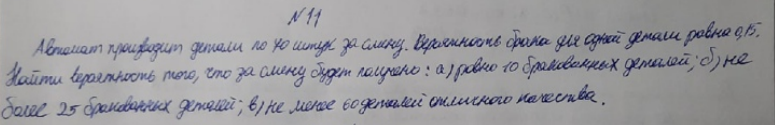 N 11
Автомат производит детали по 70 штук за смену. Вероятность брака для одной детали равна 0,15.
Найти вероятность того, что за смену будет получено: а) ровно 10 бракованных деталей; б) не
более 25 бракованных деталей; в) не менее 60 деталей отличного качества.